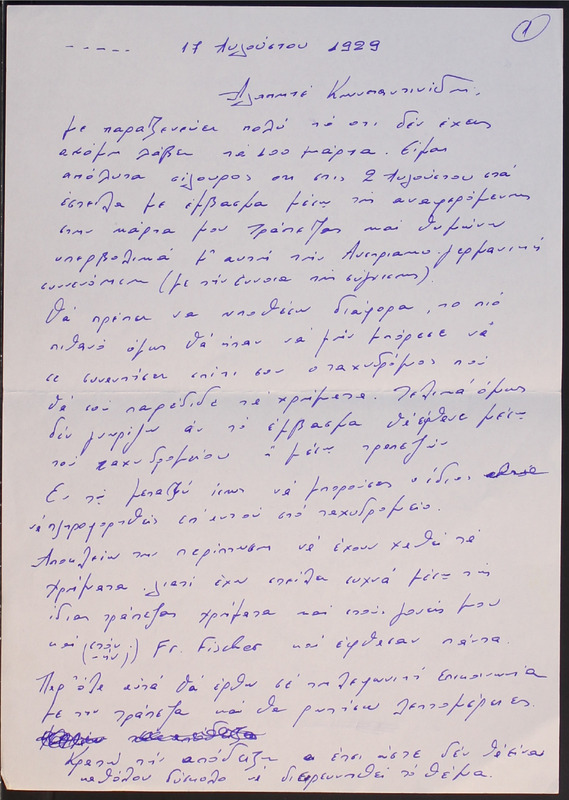 1
- - - - -   17 Αυγούστου 1929
Αγαπητέ Κωνσταντινίδη,
με παραξενεύει πολύ το ότι δεν έχεις
ακόμη λάβει τα 600 μάρκα. Είμαι
απόλυτα σίγουρος ότι στις 2 Αυγούστου στά
έστειλα με έμβασμα μέσω της αναφερόμενης
στην κάρτα μου Τράπεζας και θυμώνω
υπερβολικά μ' αυτή την Αυστριακο-γερμανική
συνεννόηση (με την έννοια της σύγχυσης).
Θά πρέπει να υποθέσω διάφορα, το πιό
πιθανό όμως θά ήταν νά μήν μπόρεσε νά
σε συναντήσει σπίτι σου ο ταχυδρόμος πού
θά σού παρέδιδε τά χρήματα. Τελικά όμως
δέν γνωρίζω άν τό έμβασμα θά έρθει μέσω
τού ταχυδρομείου ή μέσω τραπεζών
Εν τω μεταξύ ίσως νά μπορούσες ο ίδιος
νά πληροφορηθείς επ' αυτού στό ταχυδρομείο.
Αποκλείω την περίπτωση νά έχουν χαθεί τά
χρήματα γιατί έχω στείλει συχνά μέσω τής
ίδιας τράπεζας χρήματα και στούς γονείς μου
καί (στόν/στήν;) Fr. Fischer καί έφθασαν πάντα.
Παρ' όλα αυτά θά έρθω σέ τηλεφωνική επικοινωνία
με την τράπεζα και θα ρωτήσω λεπτομέρειες.
Κρατώ τήν απόδειξη έτσι ώστε δέν θά είναι
καθόλου δύσκολο νά διερευνηθεί τό θέμα.